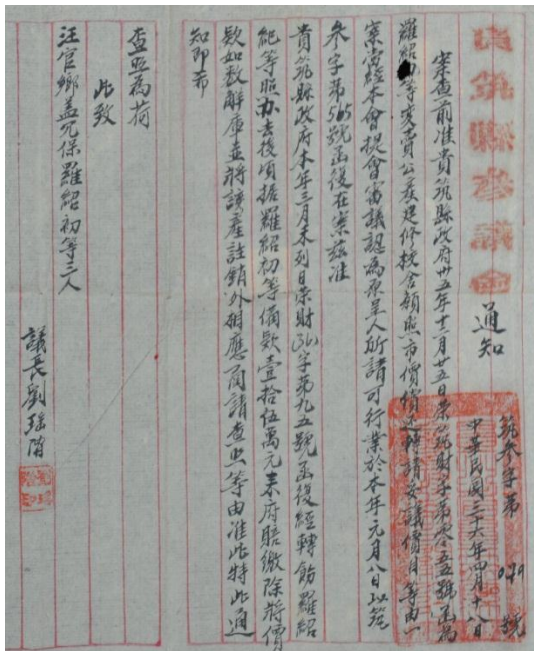 貴筑縣參議會 通知
筑參字第079號
中華民國三十六年四月十八日
案查前准貴筑縣政府卅五年十二月廿五日榮筑財字第零五五號函為
羅紹初等变賣公產建修校舍願照市價償还轉請妥議價目等由一
案當經本會提會審議認為原呈人所請可行業於本年元月八日以筑
參字第565號函復在案茲准
貴筑縣政府本年三月未列日榮財弘字第九五號函復經轉飭羅紹
初等照办去後頃据羅紹初等備欵壹拾伍萬元来府賠繳除將價
欵如数解庫並將該產註銷外相應函請查照等由准此特此通
知即希
查照為荷
此致
汪官鄉盖冗保羅紹初等三人
議長劉瑶階